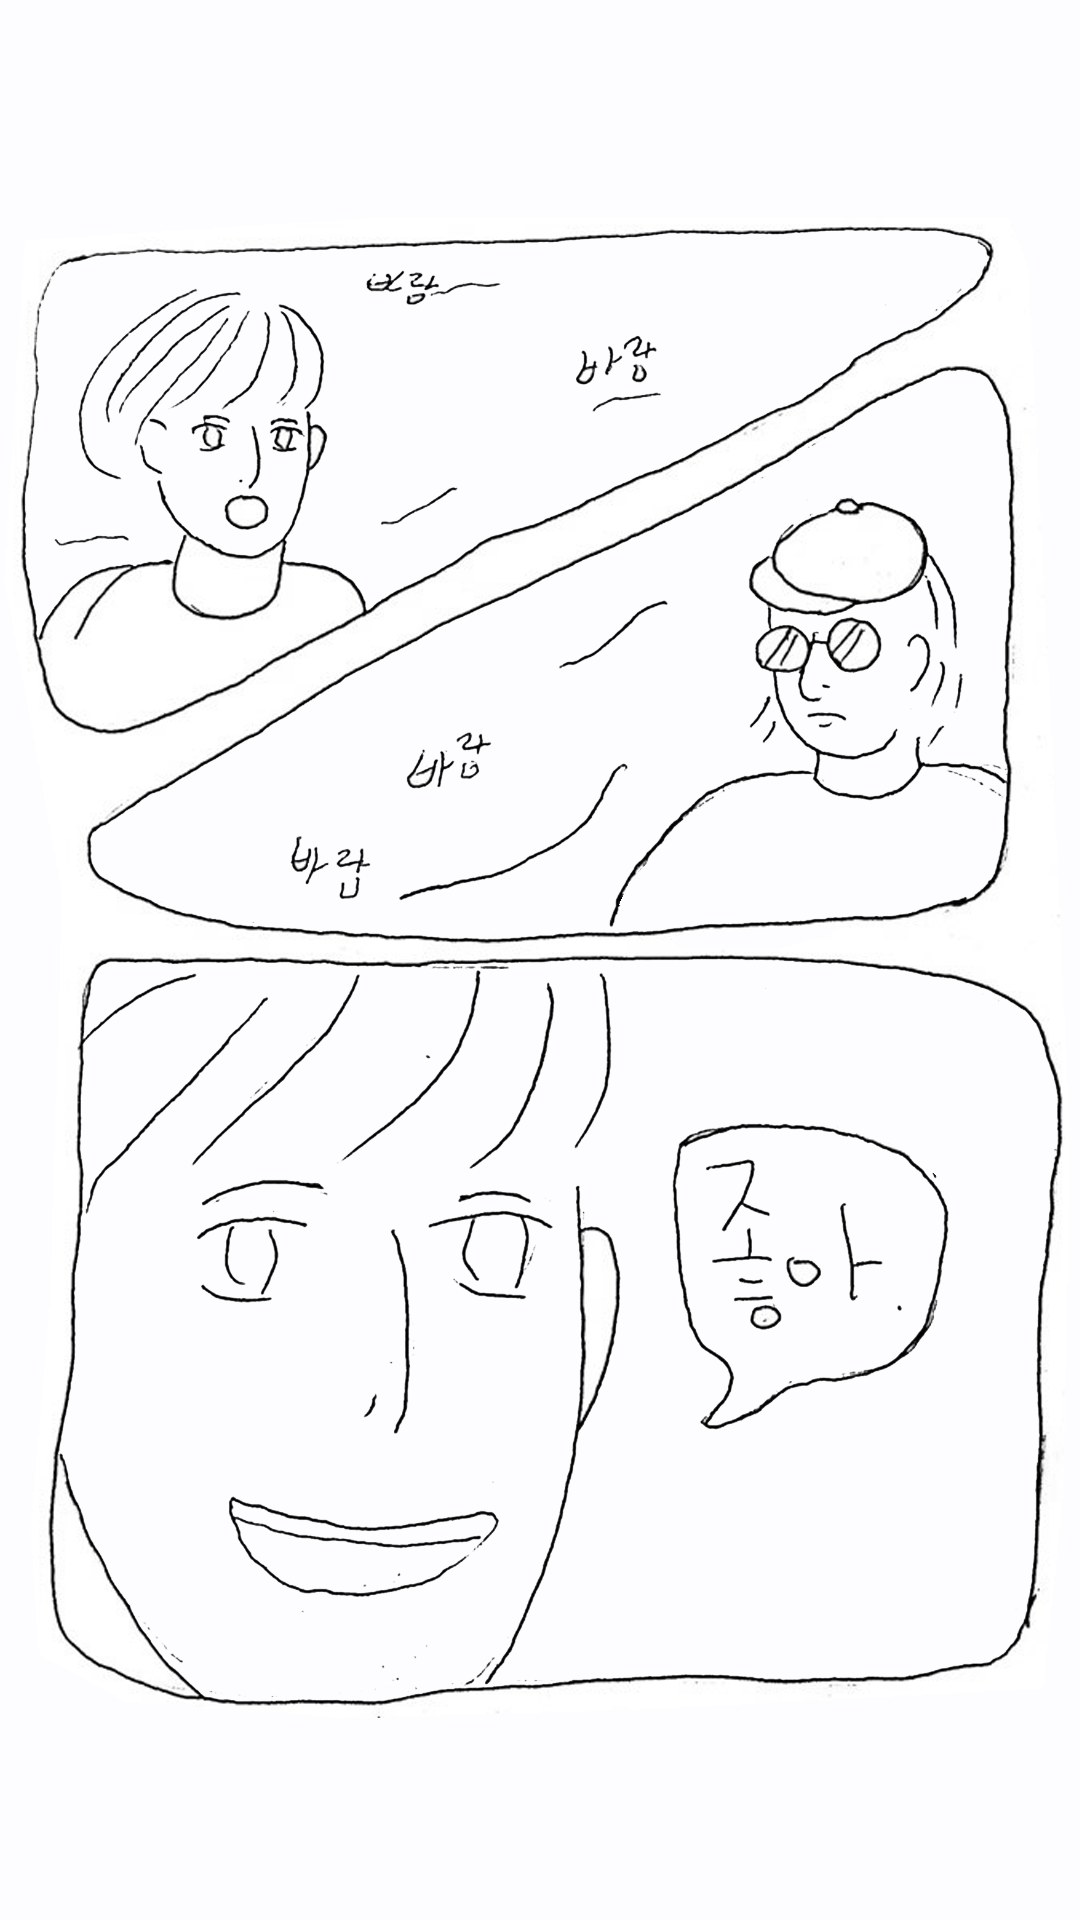 바람
바람
바람
바람
종아